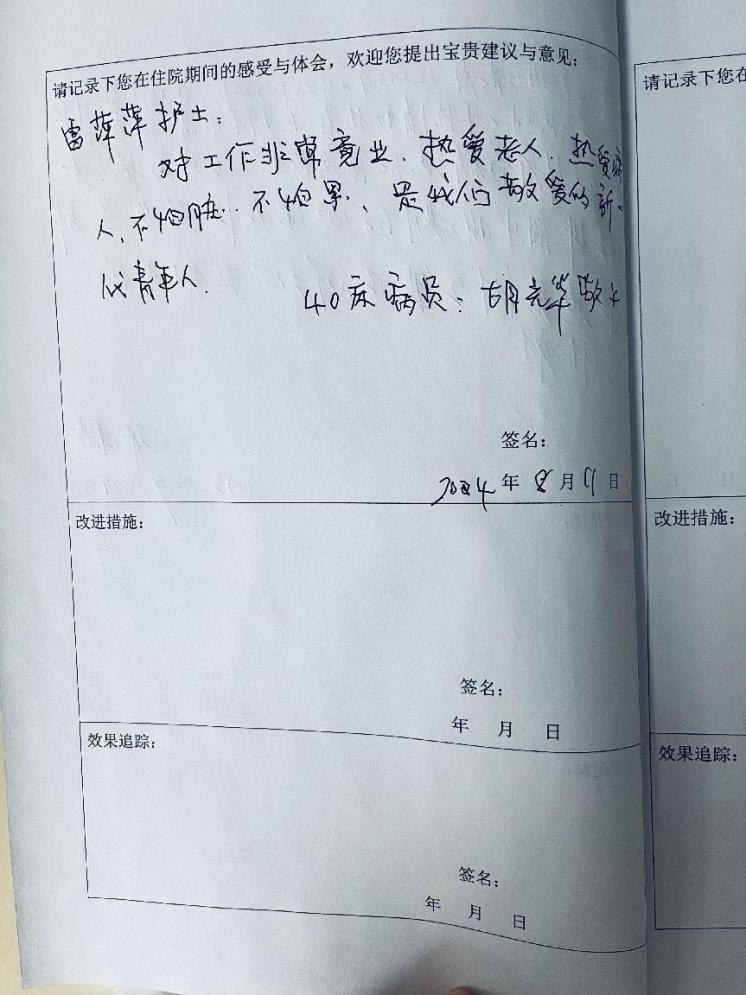 请记录下您在住院期间的感受与体会，欢迎您提出宝贵建议与意见：
雷萍萍护士：
对工作非常竟业、热爱老人、热爱病
人、不怕脏、不怕累、是我们敬爱的新一
代青年人.
40床病员：胡 敬上
签名：
2024年8月 日
改进措施：
签名：
年 月 日
效果追踪：
签名：
年 月 日
请记录下您在
日
改进措施：
效果追踪：